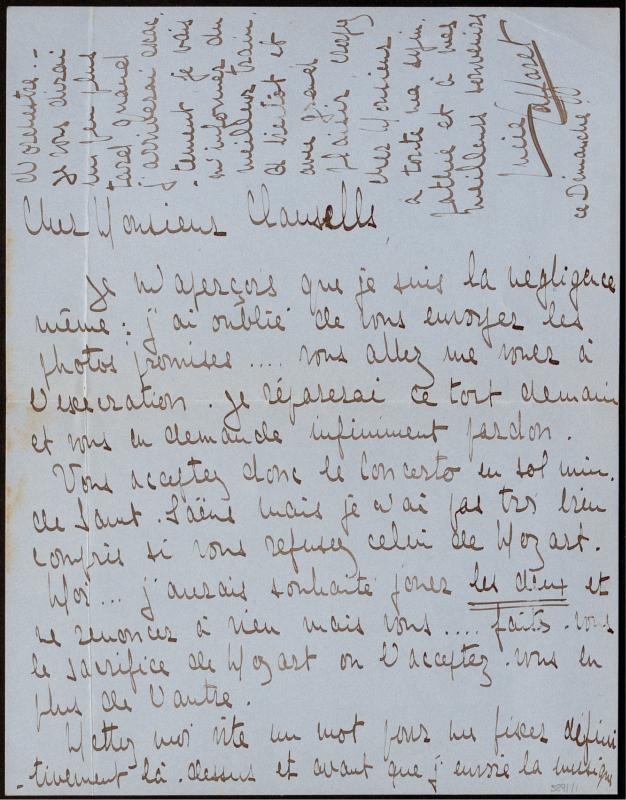 Cher Monsieur Clausells,
Je m'aperçois que je suis la négligence
même : j'ai oublié de vous envoyer les
photos promises .... vous allez me vouer à
l'exécration. Je réparerai ce tort demain
et vous en demande infiniment pardon.
Vous acceptez donc le Concerto en sol min.
de Saint-Saëns mais je n'ai pas très bien
compris si vous refusez celui de Mozart.
Moi... j'aurais souhaité jouer les deux et
ne renoncer à rien mais vous .... faites-vous
le sacrifice de Mozart ou l'acceptez-vous en
plus de l'autre.
Mettez moi vite un mot pour me fixer défini
-tivement là-dessus et avant que j'envoie la musique
d'orchestre.-
Je vous dirai
un peu plus
tard quand
j'arriverai exac-
-tement je vais
m'informer du
meilleur train.
A bientôt et
avec grand
plaisir croyez
cher Monsieur
à toute ma sym-
pathie et à mes
meilleurs souvenirs
Lucie Caffaret
ce Dimanche
3291/1